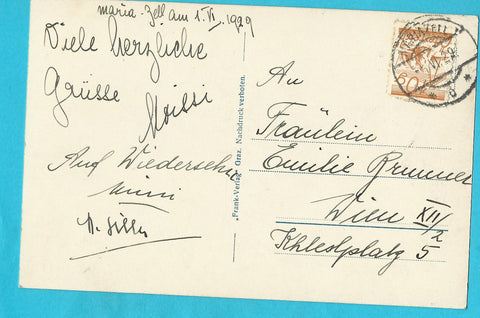 Maria-Zell am 1. VI. 1929
Viele herzliche
Grüsse
Auf Wiedersehn
Mimi
"Frank-Verlag" Graz. Nachdruck verboten.
60
An
Fräulein
Emilie Brunner
Wien XII/2
Khleslplatz 5